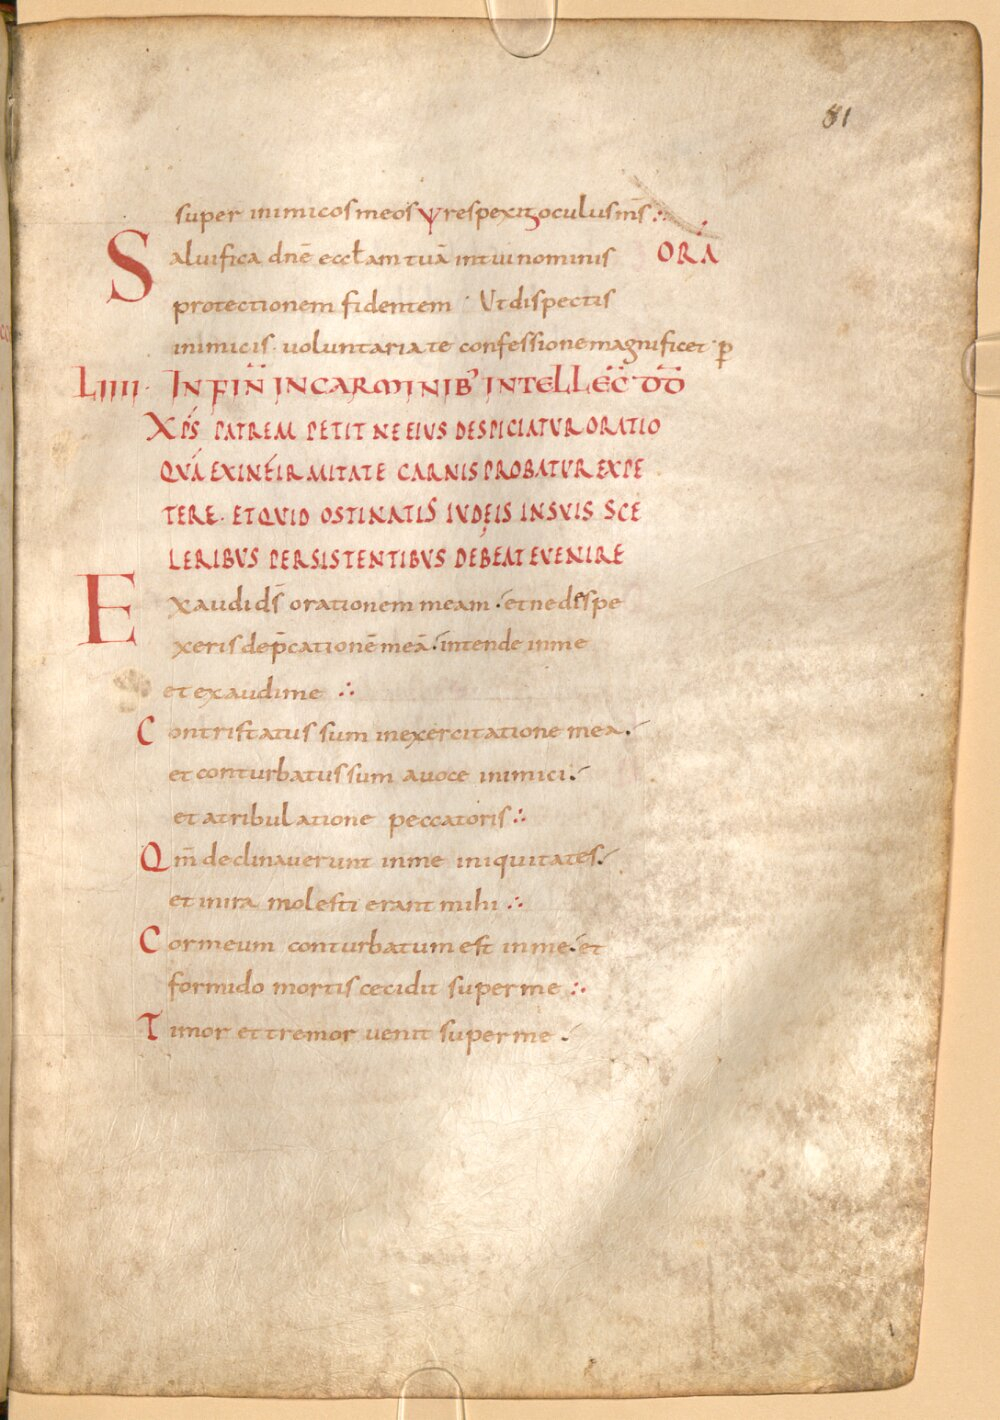 81
super inimicos meos ψ respexit oculus m̄s
ORA
Saluifica dn̄e eccl̄am tuā in tui nominis
protectionem fidentem · Ut dispectis
inimicis · voluntariate confessione magnificet · p̄
LIIII · IN FIÑ IN CARMINIB' INTELLEC̄ DD̄
XP̄S PATREM PETIT NE EIUS DESPICIATUR ORATIO
QUĀ EX INFIRMITATE CARNIS PROBATUR EXPE
TERE · ET QUID OSTINATIS IUDEIS IN SUIS SCE
LERIBUS PERSISTENTIBUS DEBEAT EVENIRE
Exaudi ds̄ orationem meam · et ne despe
xeris dep̄cationē meā · intende in me
et exaudi me ∴
Contristatus sum in exercitatione mea ·
et conturbatus sum a voce inimici ·
et a tribulatione peccatoris ∴
Qm̄ declinaverunt in me iniquitates ·
et in ira molesti erant mihi ∴
Cor meum conturbatum est in me · et
formido mortis cecidit super me ∴
Timor et tremor venit super me ·